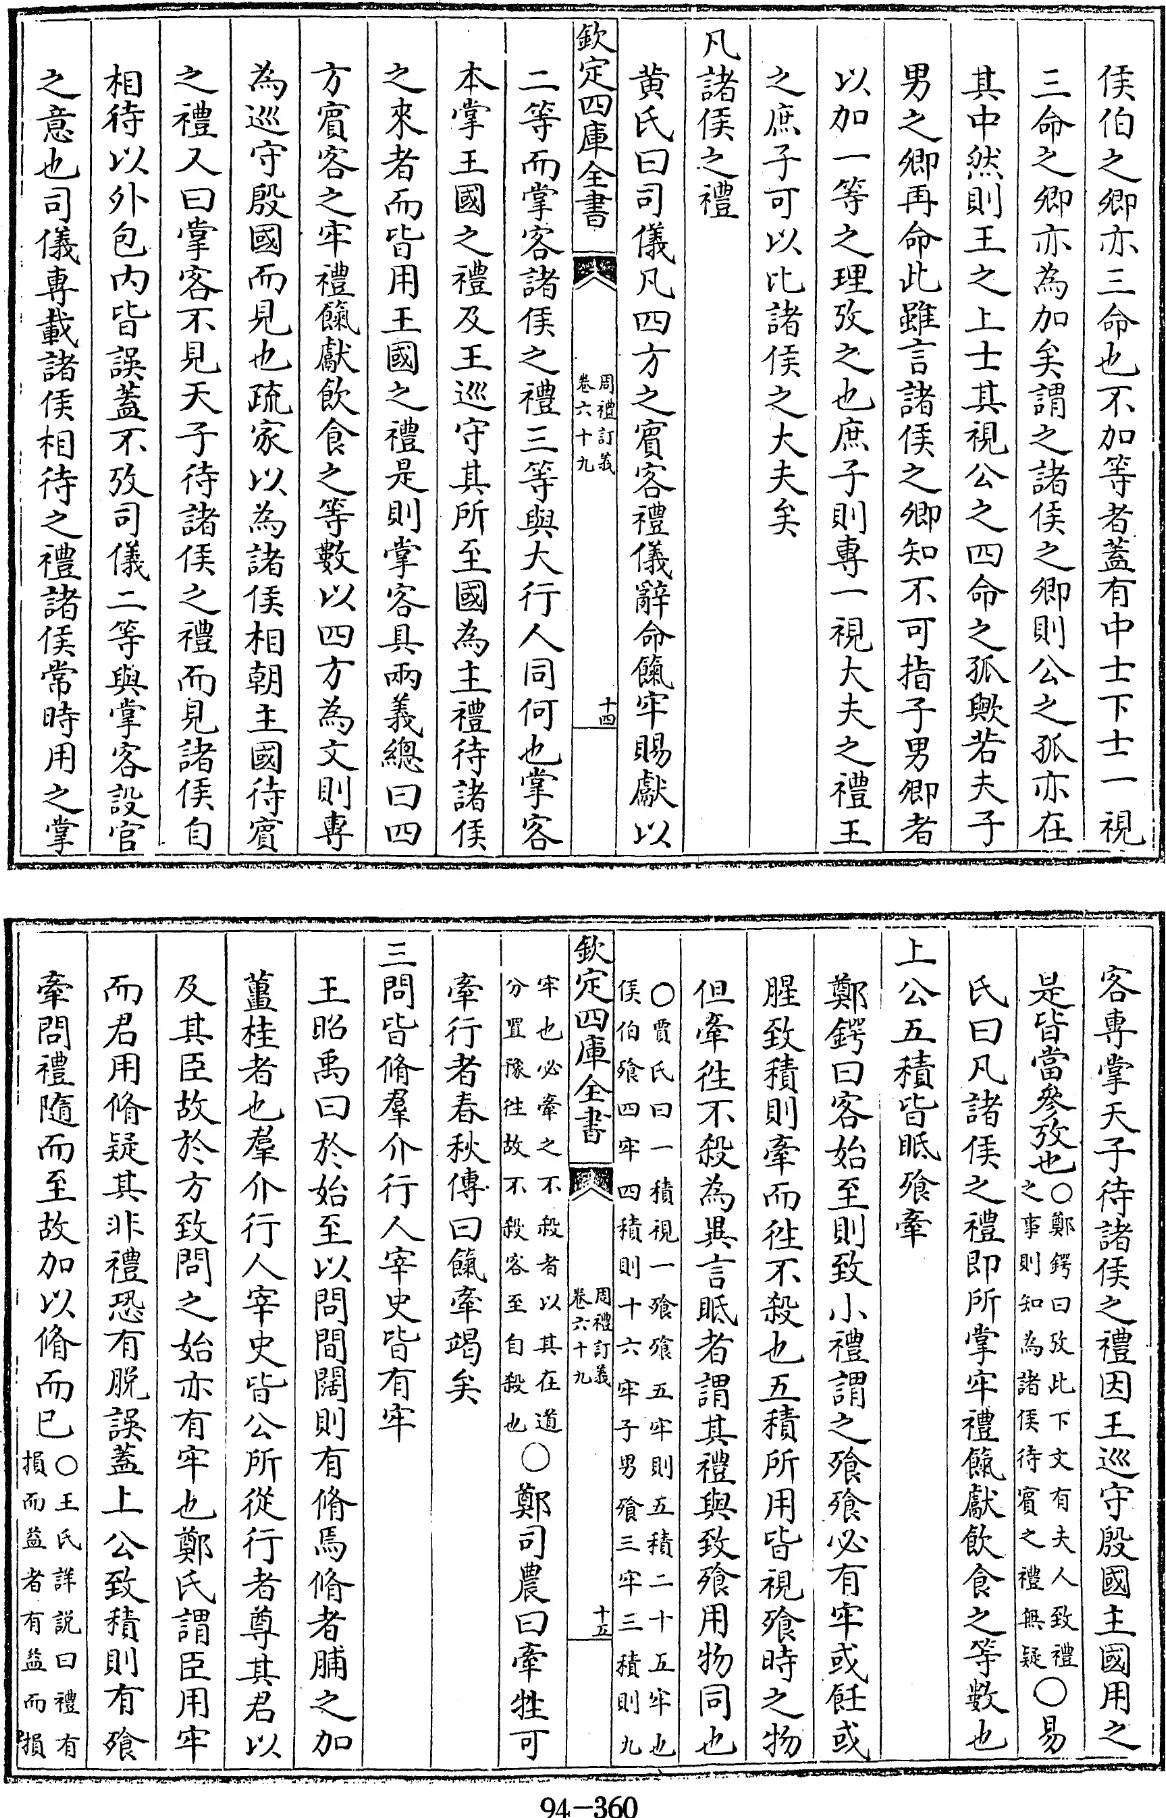 侯伯之卿亦三命也不加等者蓋有中士下士一視
三命之卿亦為加矣謂之諸侯之卿則公之孤亦在
其中然則王之上士其視公之四命之孤歟若夫子
男之卿再命此雖言諸侯之卿知不可指子男卿者
以加一等之理攷之也庶子則專一視大夫之禮王
之庶子可以比諸侯之大夫矣
凡諸侯之禮
黄氏曰司儀凡四方之賓客禮儀辭命餼牢賜獻以
欽定四庫全書
周禮訂義
卷六十九
十四
二等而掌客諸侯之禮三等與大行人同何也掌客
本掌王國之禮及王巡守其所至國為主禮待諸侯
之來者而皆用王國之禮是則掌客具兩義總曰四
方賓客之牢禮餼獻飲食之等數以四方為文則專
為巡守殷國而見也疏家以為諸侯相朝主國待賓
之禮又曰掌客不見天子待諸侯之禮而見諸侯自
相待以外包内皆誤蓋不攷司儀二等與掌客設官
之意也司儀專載諸侯相待之禮諸侯常時用之掌
客專掌天子待諸侯之禮因王巡守殷國主國用之
是皆當參攷也○鄭鍔曰攷此下文有夫人致禮之事則知為諸侯待賓之禮無疑○易
氏曰凡諸侯之禮即所掌牢禮餼獻飲食之等數也
上公五積皆眡飱牽
鄭鍔曰客始至則致小禮謂之飱飱必有牢或飪或
腥致積則牽而往不殺也五積所用皆視飱時之物
但牽徃不殺為異言眡者謂其禮與致飱用物同也
○賈氏曰一積視一飱飱五牢則五積二十五牢也
侯伯飱四牢四積則十六牢子男飱三牢三積則九
欽定四庫全書
周禮訂義
卷六十九
十五
牢也必牽之不殺者以其在道分置豫徃故不殺客至自殺也○鄭司農曰牽牲可
牽行者春秋傳曰餼牽竭矣
三問皆脩羣介行人宰史皆有牢
王昭禹曰於始至以問間闊則有脩焉脩者脯之加
薑桂者也羣介行人宰史皆公所從行者尊其君以
及其臣故於方致問之始亦有牢也鄭氏謂臣用牢
而君用脩疑其非禮恐有脱誤蓋上公致積則有飱
牽問禮隨而至故加以脩而已○王氏詳説曰禮有損而益者有益而損
94-360